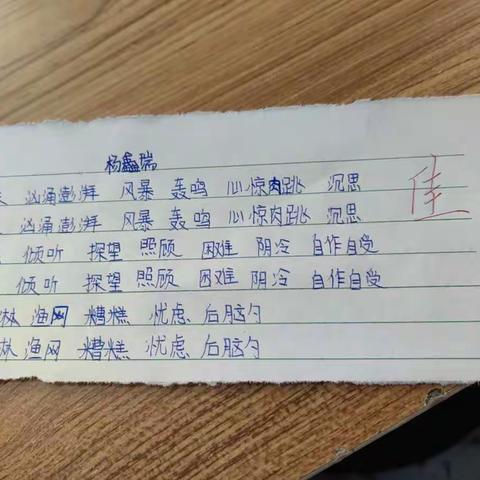 杨鑫瑞
汹涌澎湃 风暴 轰鸣 心惊肉跳 沉思
汹涌澎湃 风暴 轰鸣 心惊肉跳 沉思
倾听 探望 照顾 困难 阴冷 自作自受
倾听 探望 照顾 困难 阴冷 自作自受
淋 渔网 糟糕 忧虑 后脑勺
淋 渔网 糟糕 忧虑 后脑勺
佳